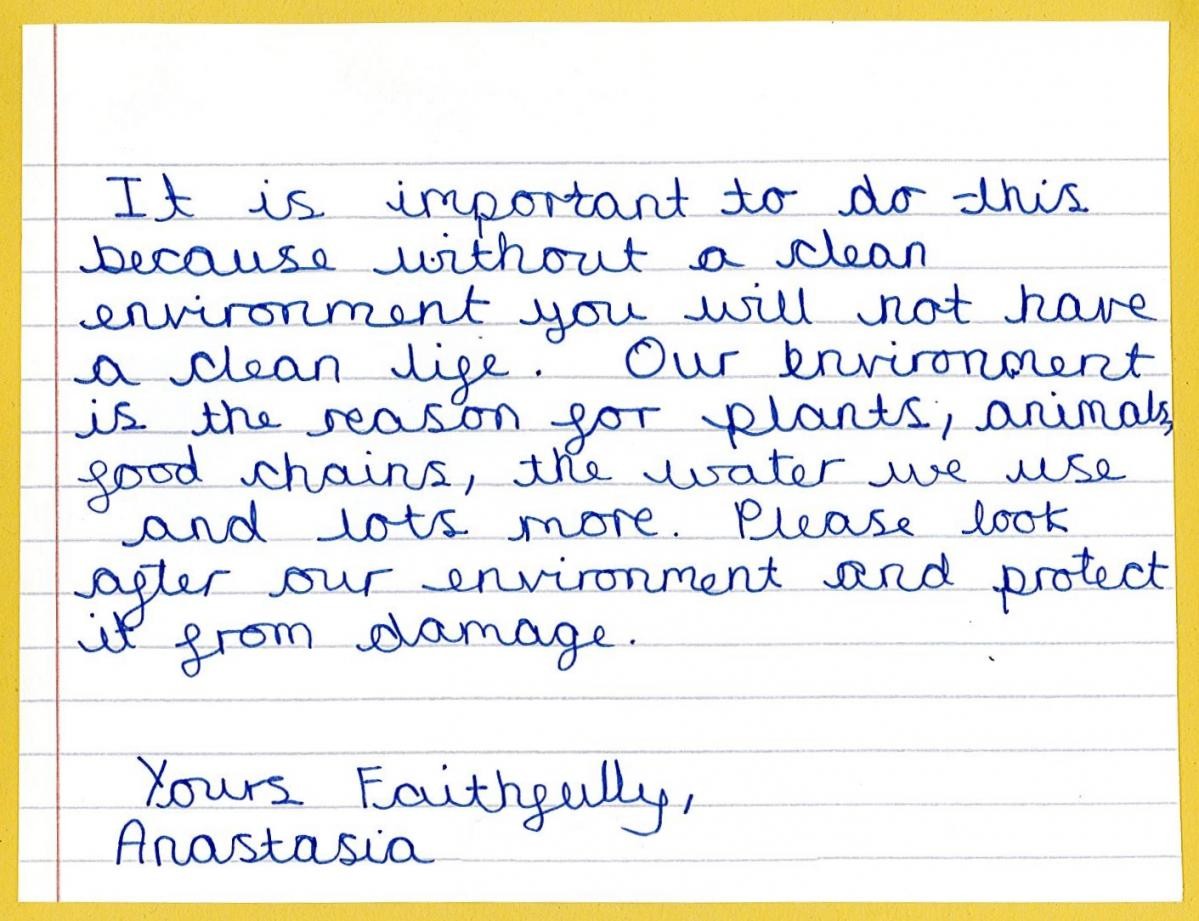 It is important to do this
because without a clean
environment you will not have
a clean life. Our environment
is the reason for plants, animals,
food chains, the water we use
and lots more. Please look
after our environment and protect
it from damage.
Yours Faithfully,
Anastasia